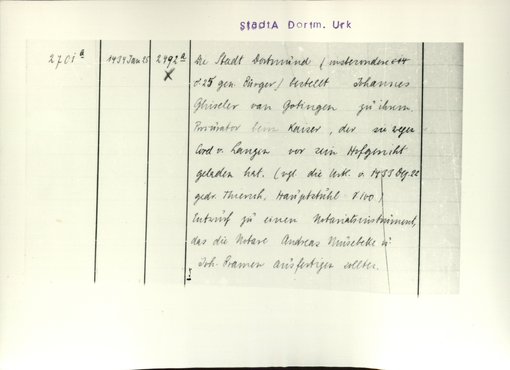 StadtA Dortm. Urk
2701ª 1434 Jan 25 2492ª Die Stadt Dortmund (insbesondere
X 25 gen. Bürger) bestellt Johannes
Ghiseler van Gotingen zu ihrem
Procurator beim Kaiser, der sie wegen
Cord v. Langen vor sein Hofgericht
geladen hat. (vgl. die Urk. v. 1433
gedr. Thiersch, Hauptstuhl S 100)
Entwurf zu einem Notariatsinstrument,
das die Notare Andreas u.
Joh. ausfertigen sollten.